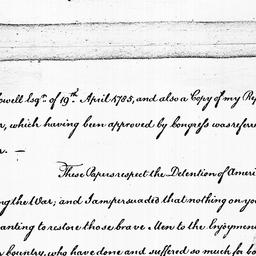 owell Esqr. of 19th. April 1785, and also a Copy of my Rep
r, which having been approved by Congress was refer
r. —
These Papers respect the Detention of Ameri
ng the War; and I am persuaded that nothing on yo
anting to restore those brave Men to the Enjoymen
country, who have done and suffered so much for